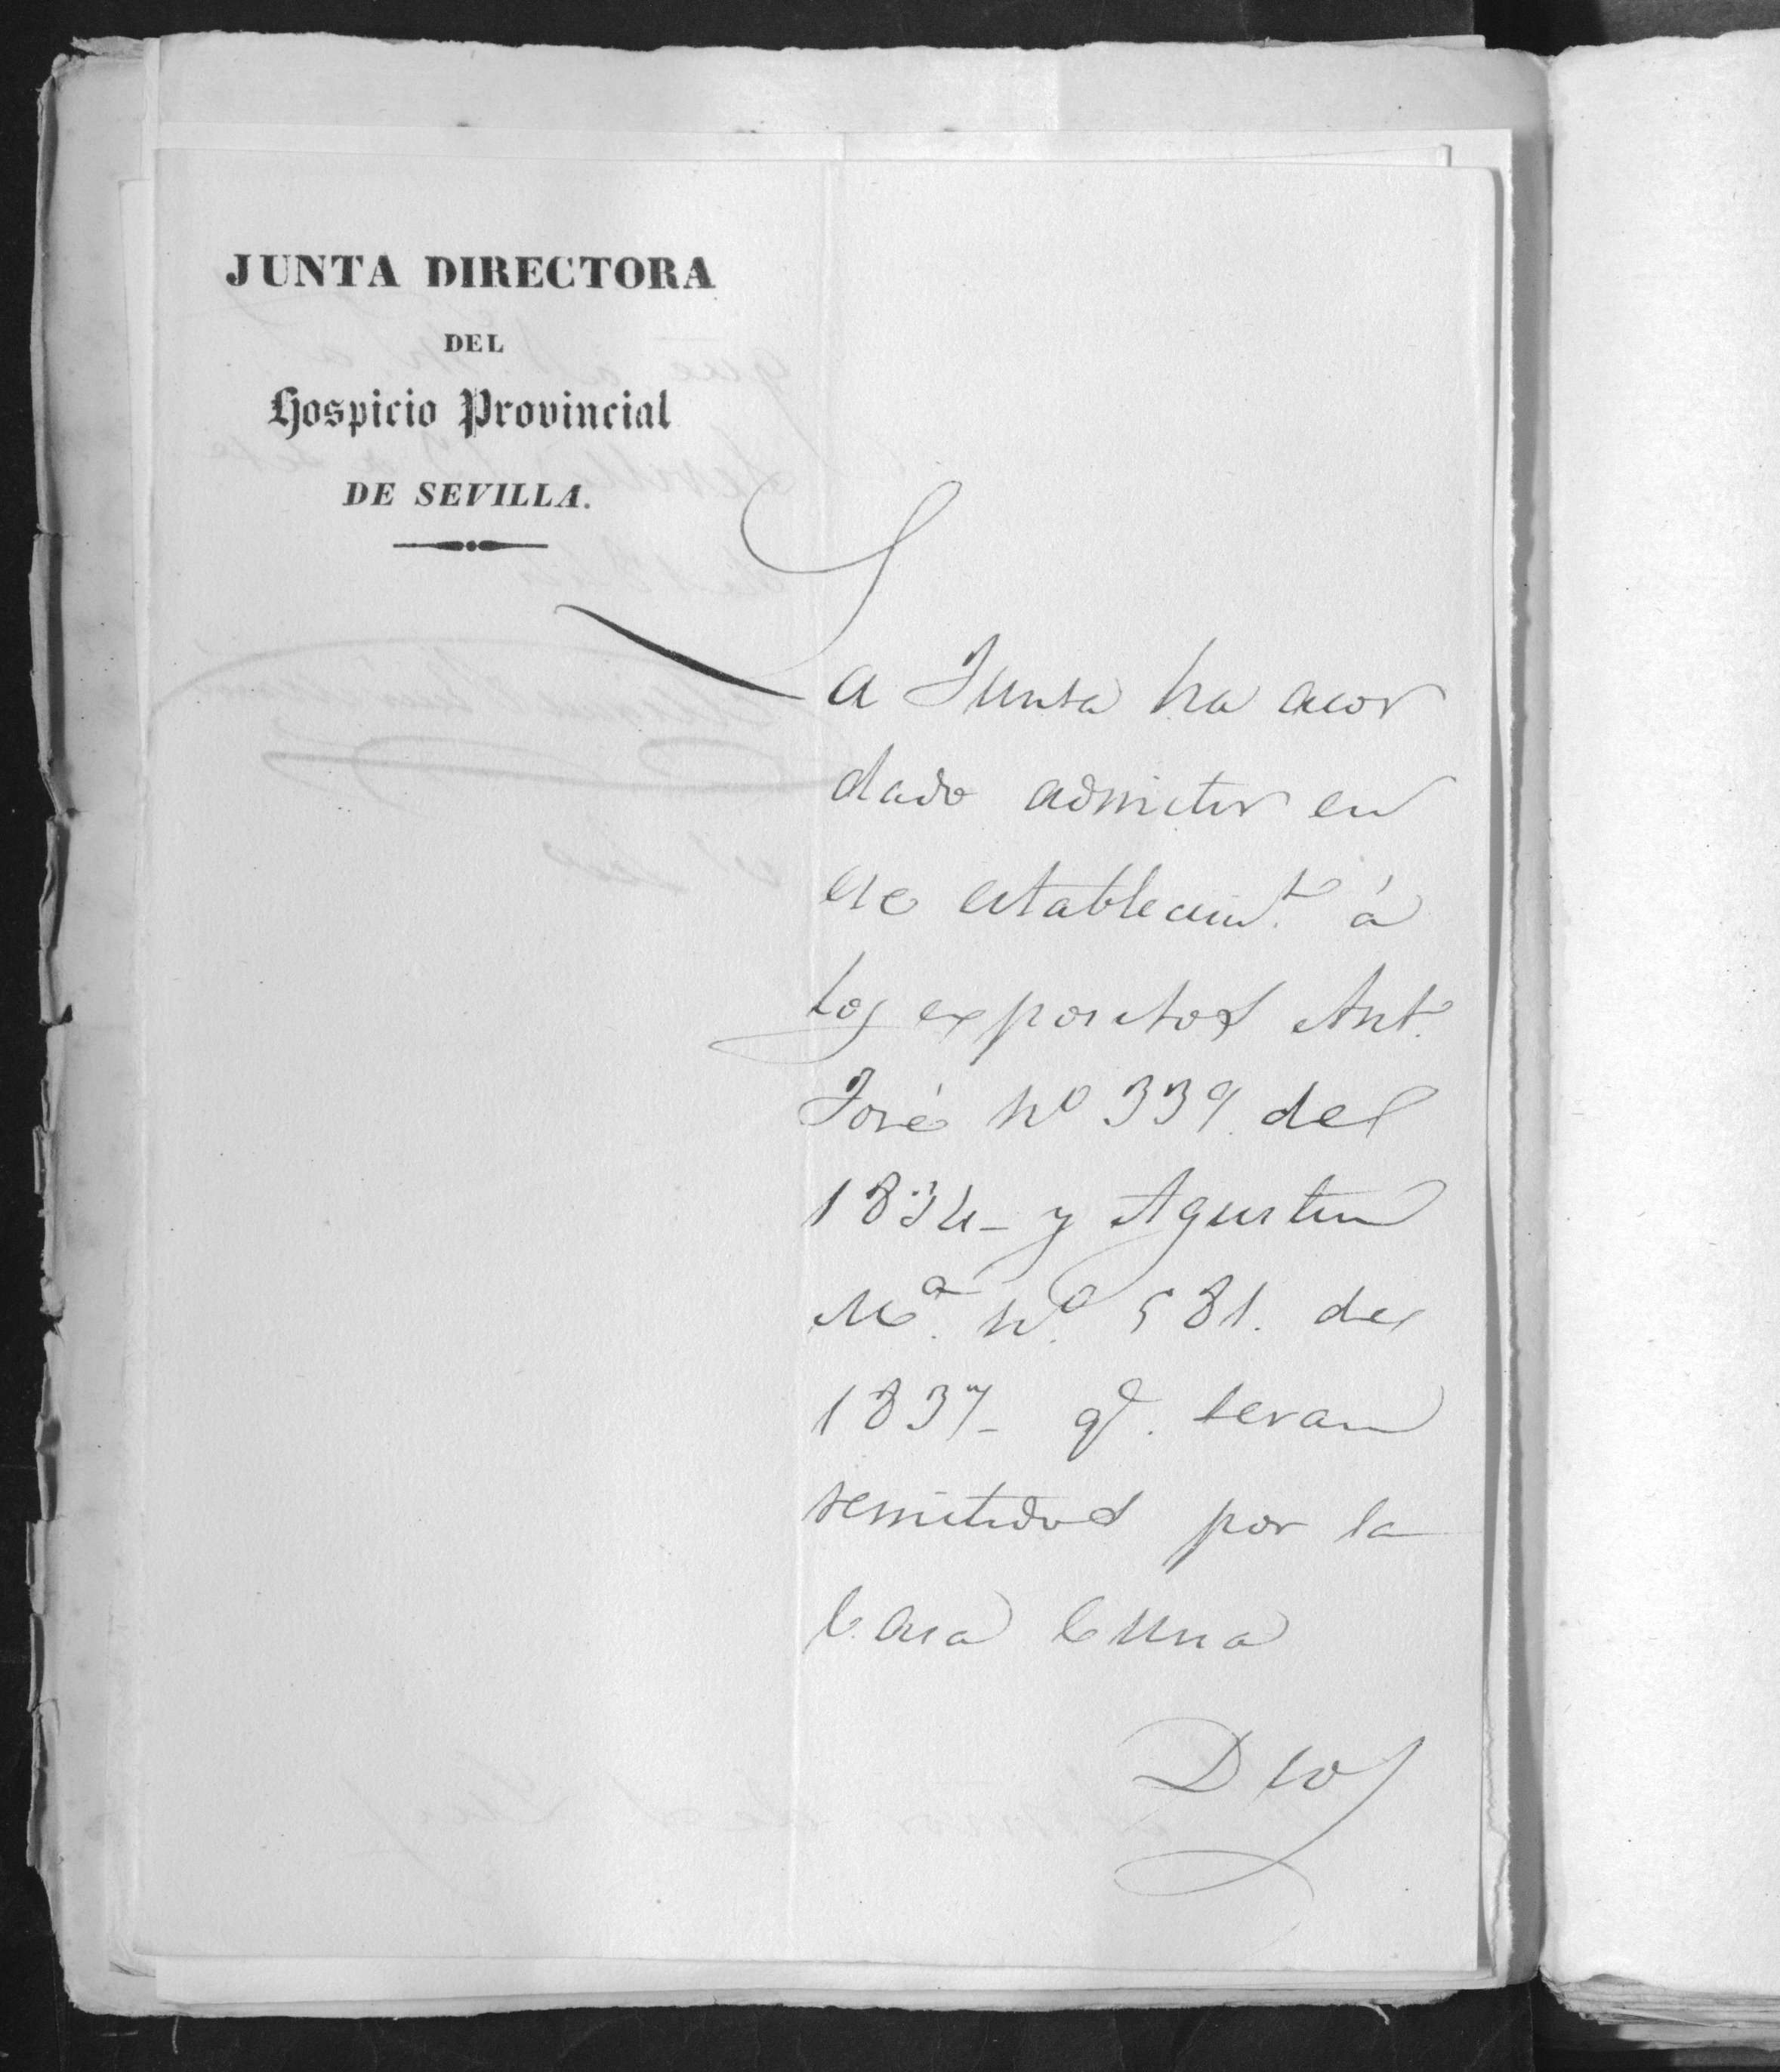 JUNTA DIRECTORA
DEL
Hospicio Provincial
DE SEVILLA.
La Junta ha acor
dado admitir en
ese establecim.to á
los expositos Ant.o
José Nº 339. del
1834 - y Agustin
M.a N.o 581. del
1837 - q.e seran
remitidos por la
Casa Cuna
Dios